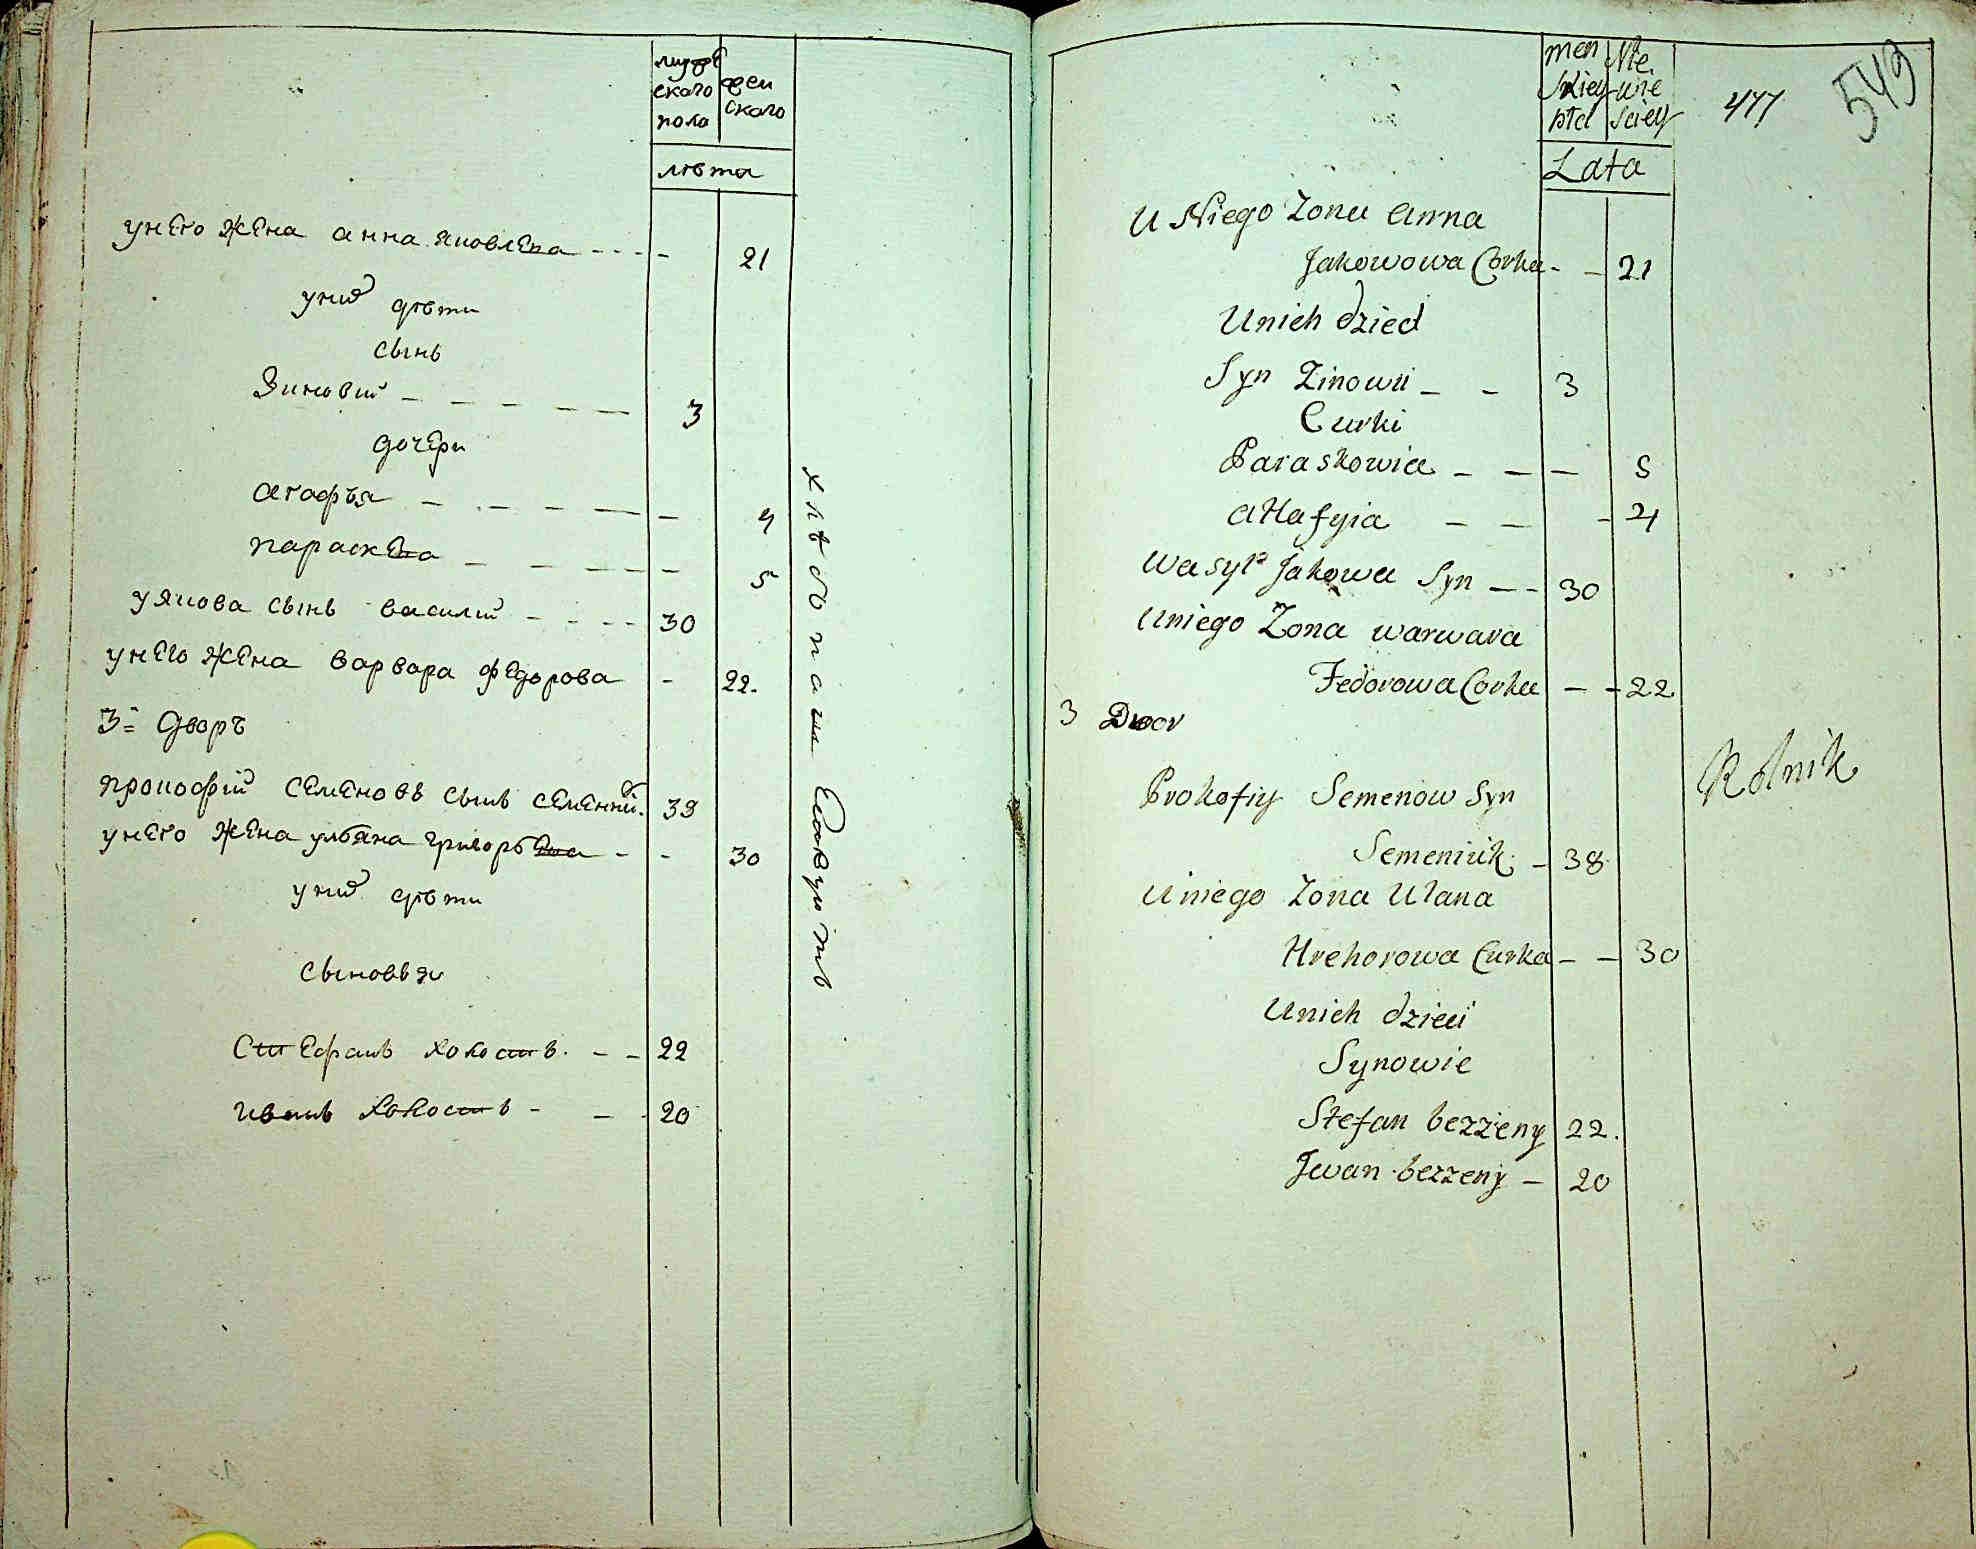 мужеского пола
женского
лѣта
у нево жена анна яковлева - - - - 21
у них дѣти
сынъ
Зиновий - - - - - 3
дочери
агафья - - - - - - 4
параскева - - - - - 5
у якова сынъ василий - - - - 30
у нево жена варвара федорова - 22.
3й дворъ
прокофий семеновъ сынъ 38
у нево жена ульяна григорьева - - 30
у них дѣти
сыновья
Стефанъ холостъ. - - 22
иванъ холостъ - - - 20
хлѣбопашествуютъ
męskiey płci
Nie wie sciey
Lata
477
549
U Niego Zona Anna
Jakowowa Corka - - 21
Unich dzieci
Syn Zinowii - - 3
Curki
Paraskowia - - - 5
aHafyia - - - 4
Wasyl Jakowa Syn - - 30
Uniego Zona warwara
Fedorowa Corka - - 22
3 Dwor
Prokofiy Semenow Syn
Rolnik
Semeniuk - 38
Uniego Zona Ulana
Hrehorowa Curka - - 30
Unich dzieci
Synowie
Stefan bezzeny 22.
Jwan bezzeny - 20